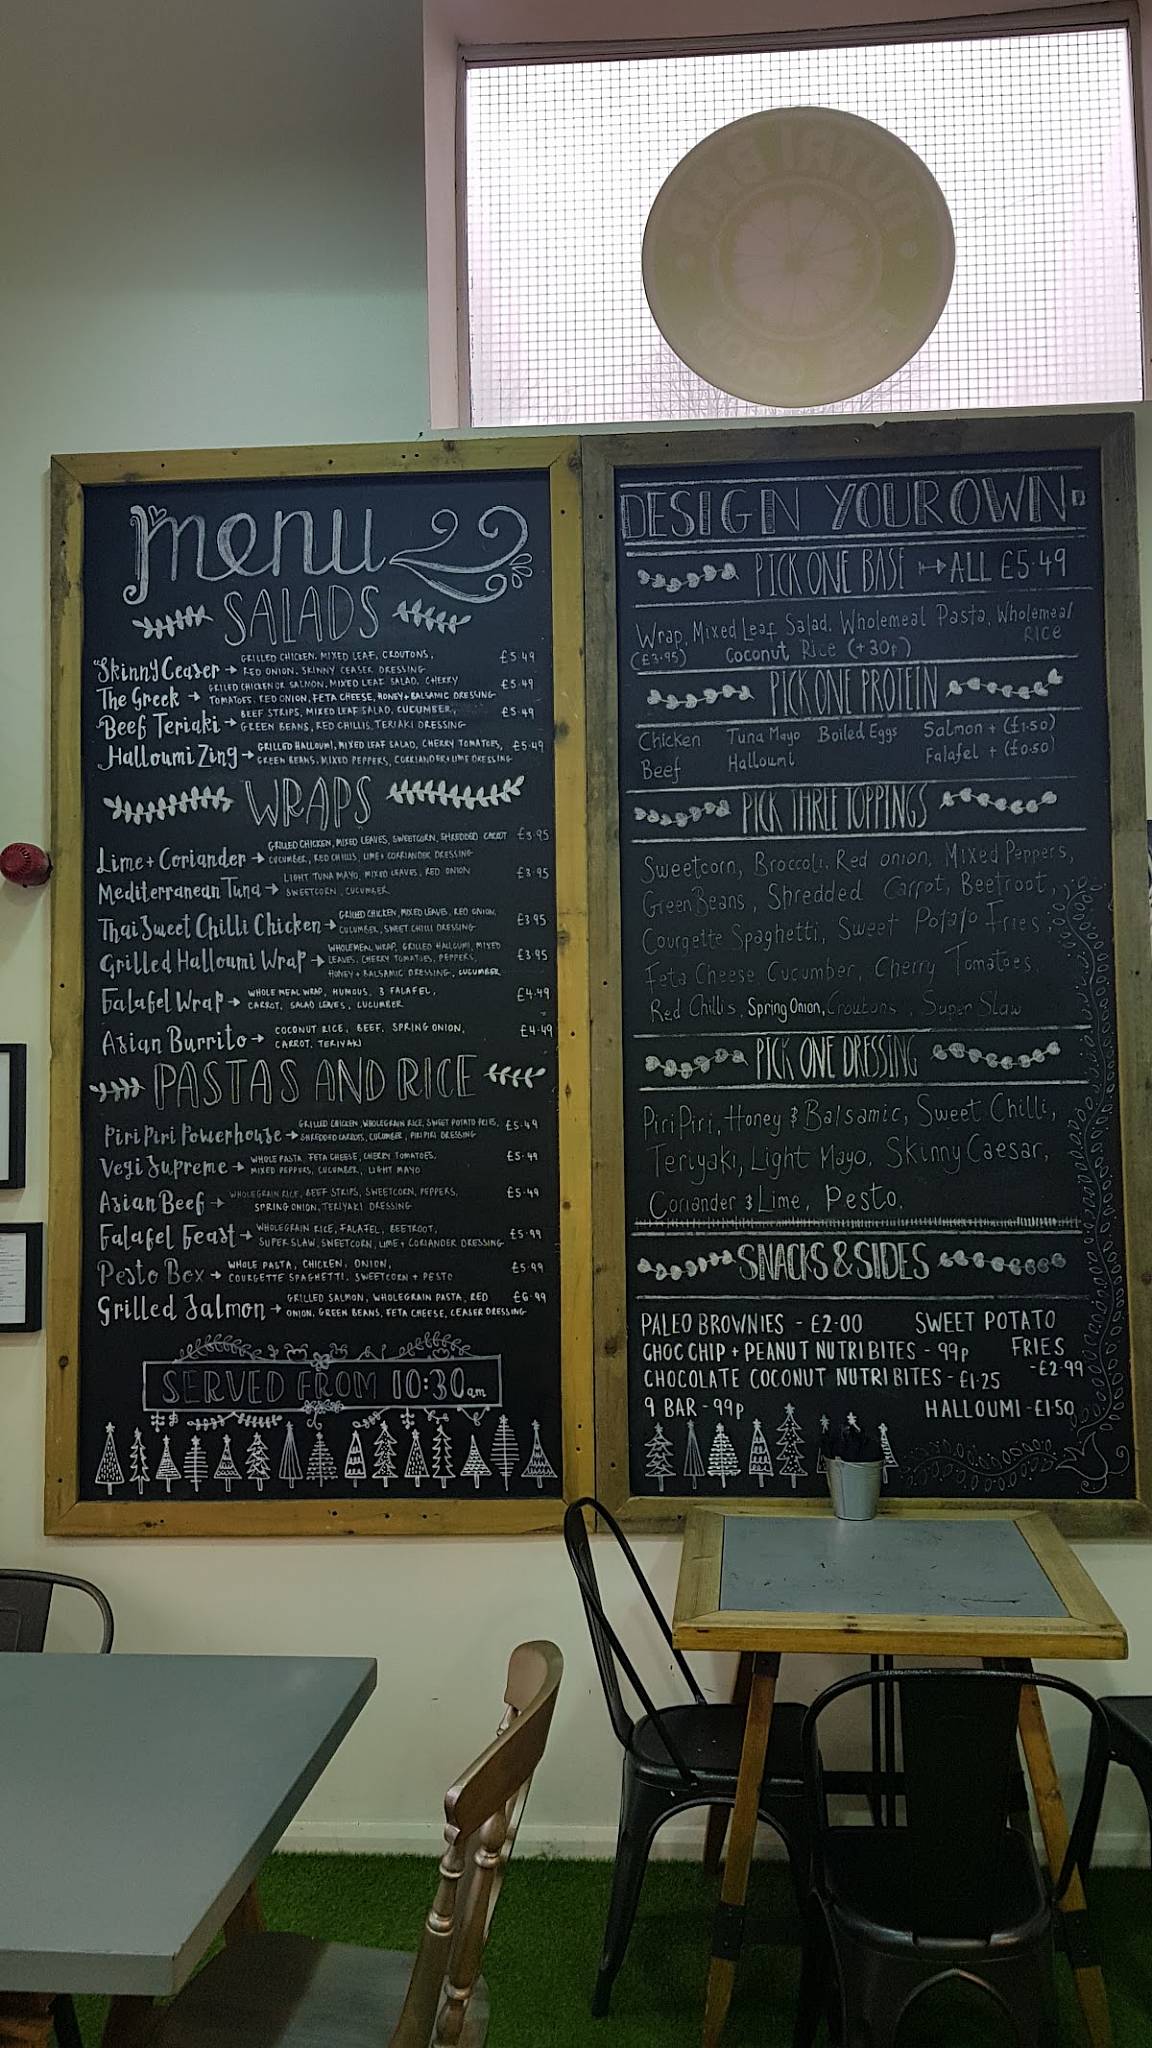 NUTRI BAR
menu
SALADS
Skinny Ceaser → GRILLED CHICKEN, MIXED LEAF, CROUTONS, £5.49
RED ONION, SKINNY CEASER DRESSING
The Greek → GRILLED CHICKEN OR SALMON, MIXED LEAF SALAD, CHERRY £5.49
TOMATOES, RED ONION, FETA CHEESE, HONEY + BALSAMIC DRESSING
Beef Teriaki → BEEF STRIPS, MIXED LEAF SALAD, CUCUMBER, £5.49
GREEN BEANS, RED CHILLIS, TERIAKI DRESSING
Halloumi Zing → GRILLED HALLOUMI, MIXED LEAF SALAD, CHERRY TOMATOES, £5.49
GREEN BEANS, MIXED PEPPERS, CORRIANDER + LIME DRESSING
WRAPS
Lime + Coriander → GRILLED CHICKEN, MIXED LEAVES, SWEETCORN, SHREDDED CARROT £3.95
CUCUMBER, RED CHILLIS, LIME + CORRIANDER DRESSING
Mediterranean Tuna → LIGHT TUNA MAYO, MIXED LEAVES, RED ONION £3.95
SWEETCORN, CUCUMBER
Thai Sweet Chilli Chicken → GRILLED CHICKEN, MIXED LEAVES, RED ONION, £3.95
CUCUMBER, SWEET CHILLI DRESSING
Grilled Halloumi Wrap → WHOLEMEAL WRAP, GRILLED HALLOUMI, MIXED £3.95
LEAVES, CHERRY TOMATOES, PEPPERS,
HONEY + BALSAMIC DRESSING, CUCUMBER
Falafel Wrap → WHOLE MEAL WRAP, HUMOUS, 3 FALAFEL, £4.49
CARROT, SALAD LEAVES, CUCUMBER
Asian Burrito → COCONUT RICE, BEEF, SPRING ONION, £4.49
CARROT, TERIYAKI
PASTAS AND RICE
Piri Piri Powerhouse → GRILLED CHICKEN, WHOLEGRAIN RICE, SWEET POTATO FRIES, £5.49
SHREDDED CARROTS, CUCUMBER, PIRI PIRI DRESSING
Vegi Supreme → WHOLE PASTA, FETA CHEESE, CHERRY TOMATOES, £5.49
MIXED PEPPERS, CUCUMBER, LIGHT MAYO
Asian Beef → WHOLEGRAIN RICE, BEEF STRIPS, SWEETCORN, PEPPERS, £5.49
SPRING ONION, TERIYAKI DRESSING
Falafel Feast → WHOLEGRAIN RICE, FALAFEL, BEETROOT, £5.99
SUPER SLAW, SWEETCORN, LIME + CORIANDER DRESSING
Pesto Box → WHOLE PASTA, CHICKEN, ONION, £5.99
COURGETTE SPAGHETTI, SWEETCORN + PESTO
Grilled Salmon → GRILLED SALMON, WHOLEGRAIN PASTA, RED £6.99
ONION, GREEN BEANS, FETA CHEESE, CEASER DRESSING
SERVED FROM 10:30am
DESIGN YOUR OWN
PICK ONE BASE → ALL £5.49
Wrap, Mixed Leaf Salad, Wholemeal Pasta, Wholemeal
(£3.95) Coconut Rice (+30p) Rice
PICK ONE PROTEIN
Chicken Tuna Mayo Boiled Eggs Salmon + (£1.50)
Beef Halloumi Falafel + (£0.50)
PICK THREE TOPPINGS
Sweetcorn, Broccoli, Red onion, Mixed Peppers,
Green Beans, Shredded Carrot, Beetroot,
Courgette Spaghetti, Sweet Potato Fries,
Feta Cheese Cucumber, Cherry Tomatoes,
Red Chillis, Spring Onion, Croutons, Super Slaw
PICK ONE DRESSING
Piri Piri, Honey & Balsamic, Sweet Chilli,
Teriyaki, Light Mayo, Skinny Caesar,
Coriander & Lime, Pesto.
SNACKS & SIDES
PALEO BROWNIES - £2.00 SWEET POTATO
CHOC CHIP + PEANUT NUTRI BITES - 99p FRIES
CHOCOLATE COCONUT NUTRI BITES - £1.25 - £2.99
9 BAR - 99p HALLOUMI - £1.50